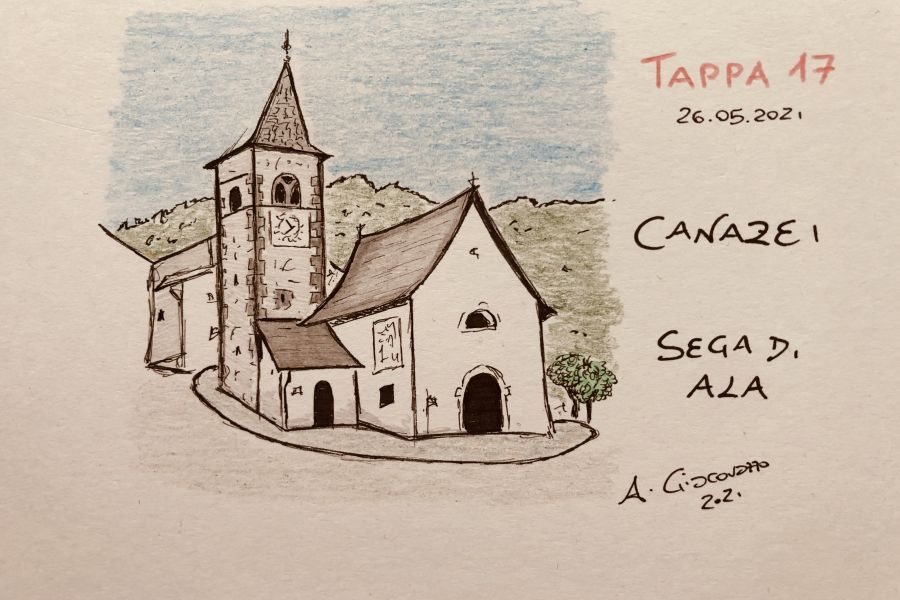 TAPPA 17
26.05.2021
CANAZEI
SEGA DI
ALA
A. Giacovazzo
2021